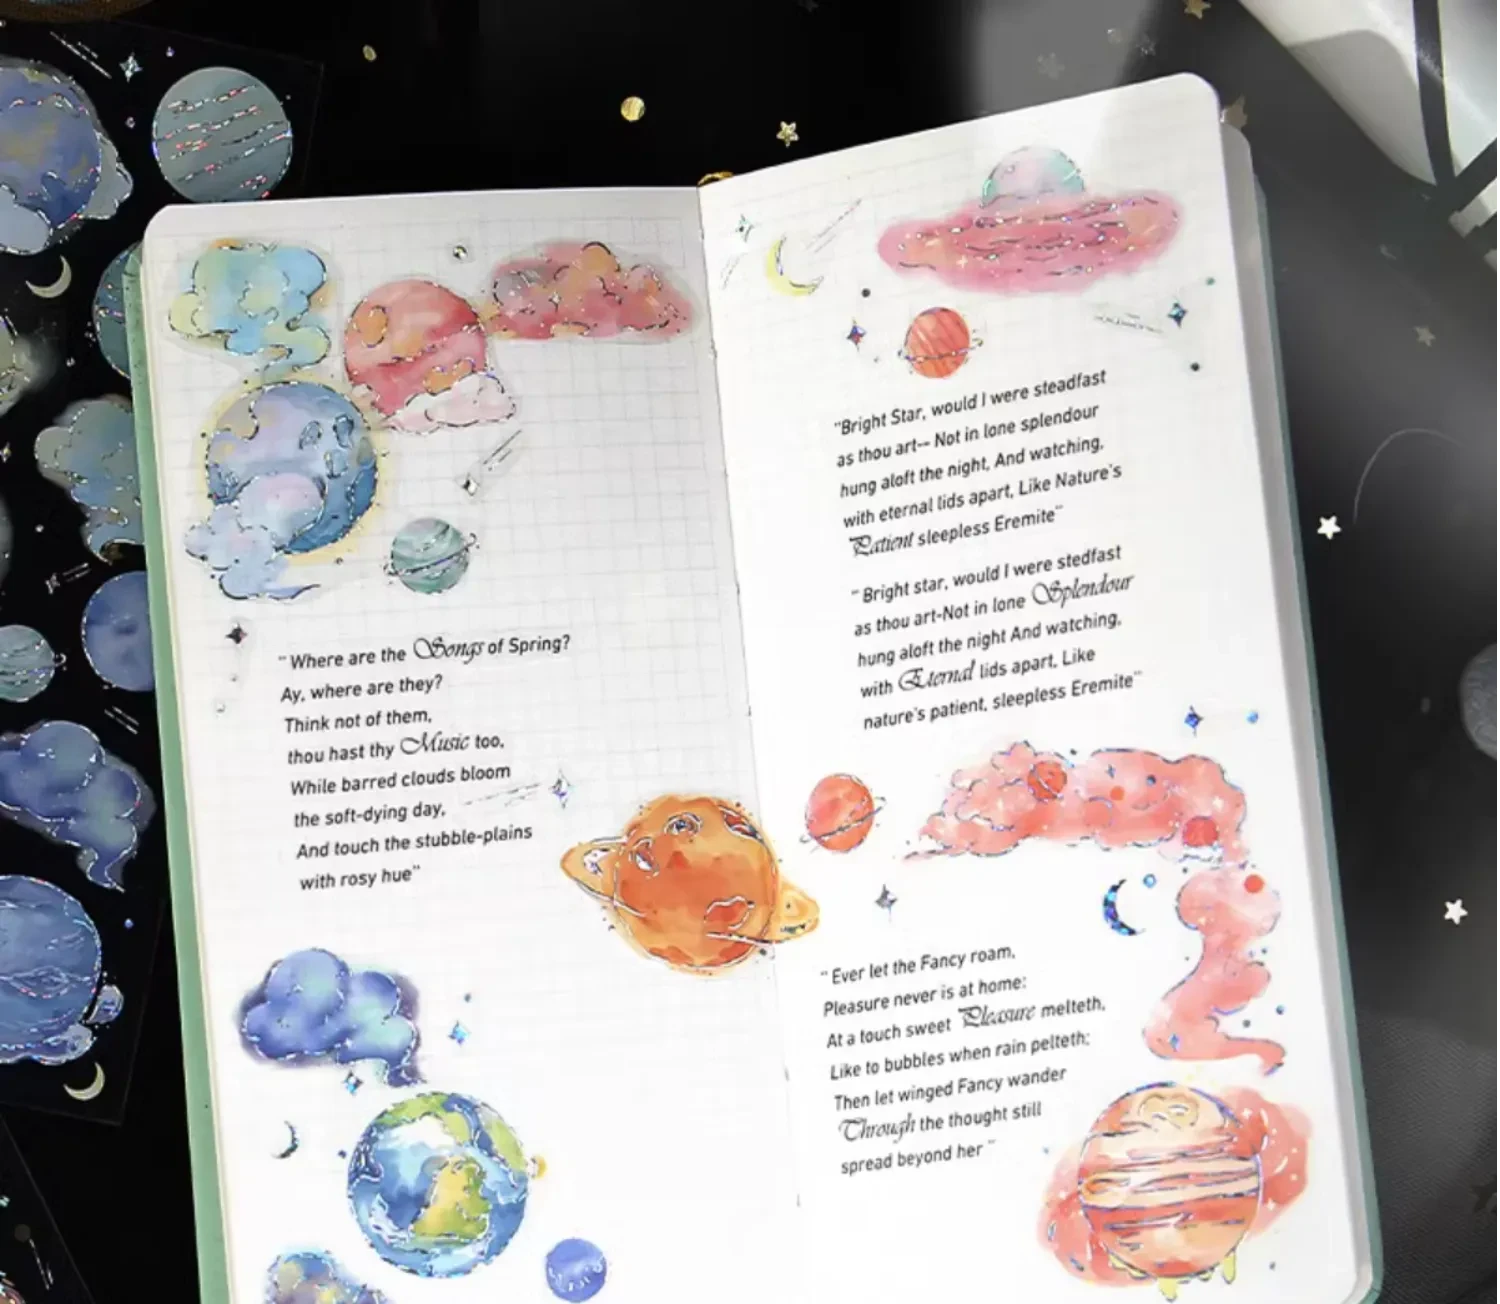 " Where are the Songs of Spring?
Ay, where are they?
Think not of them,
thou hast thy Music too,
While barred clouds bloom
the soft-dying day,
And touch the stubble-plains
with rosy hue"
"Bright Star, would I were steadfast
as thou art-- Not in lone splendour
hung aloft the night, And watching,
with eternal lids apart, Like Nature's
Patient sleepless Eremite"
" Bright star, would I were stedfast
as thou art-Not in lone Splendour
hung aloft the night And watching,
with Eternal lids apart, Like
nature's patient, sleepless Eremite"
" Ever let the Fancy roam,
Pleasure never is at home:
At a touch sweet Pleasure melteth,
Like to bubbles when rain pelteth;
Then let winged Fancy wander
Through the thought still
spread beyond her "